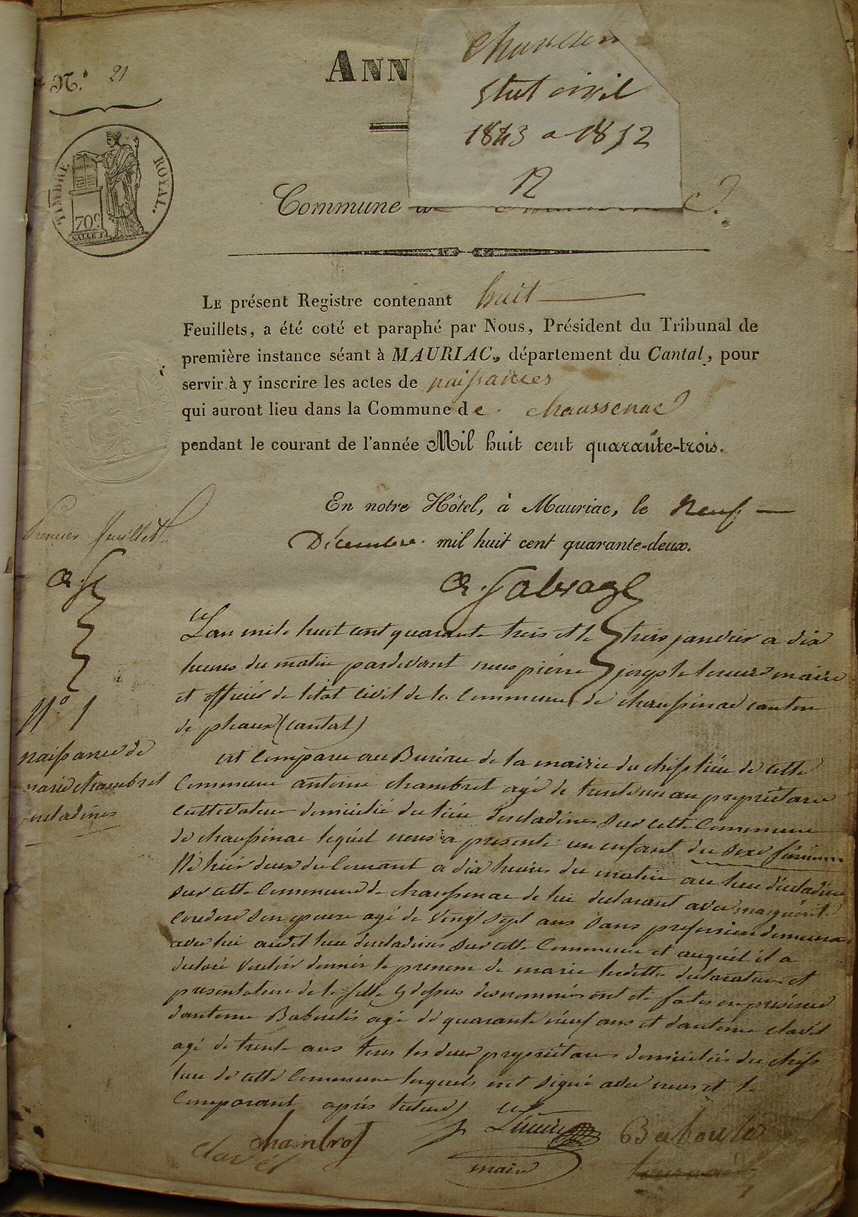 N.º 21
ANN
chaussen
Etat civil
1843 a 1852
12
TIMBRE ROYAL.
70c
Commune
LE présent Registre contenant huit
Feuillets, a été coté et paraphé par Nous, Président du Tribunal de
première instance séant à MAURIAC, département du Cantal, pour
servir à y inscrire les actes de naissances
qui auront lieu dans la Commune de chaussenac
pendant le courant de l'année Mil huit cent quarante-trois.
En notre Hôtel, à Mauriac, le Neuf
Décembre mil huit cent quarante-deux.
Premier feuillet
L'an mil huit cent quarante trois et le trois janvier a dix
heures du matin pardevant nous pierre maire
et officier de létat civil de la Commune de chaussenac canton
de pleaux (cantal)
N° 1
naissance de
marie chambret
escladines
est Comparu au Bureau de la mairie du chef lieu de cette
Commune antoine chambret agé de trente un an propriétaire
Cultivateur domicilié du lieu descladines sur cette Commune
de chaussenac lequel nous a présenté un enfant du sexe féminin
Né hier deux du Courant a dix heures du matin au lieu descladines
sur cette Commune de chaussenac de lui declarant avec marguerite
son epouse agé de vingt sept ans sans profession demeurant
avec lui audit lieu descladines sur cette Commune et auquel il a
declaré vouloir donner le prenom de marie ladite declaration et
presentation de la fille ont été faites en présence
dantoine Baboulès agé de quarante neuf ans et dantoine clavel
agé de trente ans tous les deux propriétaires domiciliés du chef
lieu de cette Commune lesquels ont signé avec nous et le
Comparant après lecture
chambret
maire